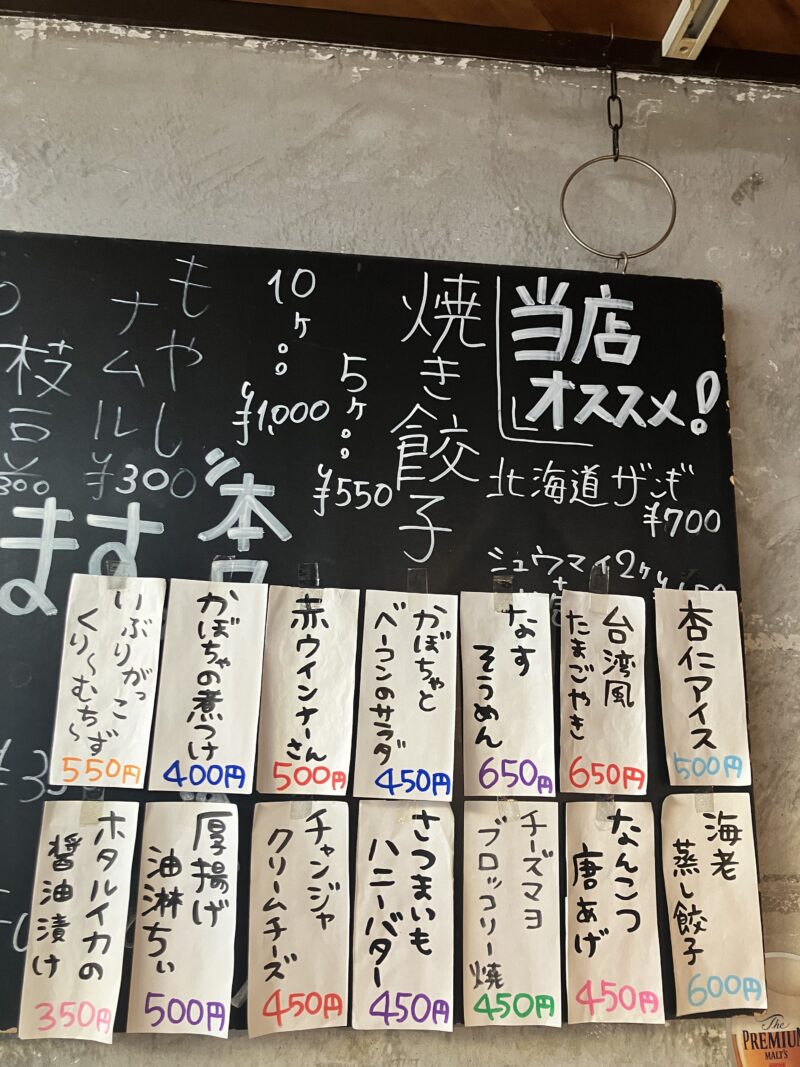 当店
オススメ!
北海道ザンギ
¥700
シュウマイ2ケ
焼き餃子
5ケ。。
¥550
10ケ。。
¥1,000
もやし
ナムル
¥300
枝豆
ます
本
杏仁アイス
500円
台湾風
たまごやき
650円
なす
そうめん
650円
かぼちゃと
ベーコンのサラダ
450円
赤ウインナーさん
500円
かぼちゃの煮つけ
400円
いぶりがっこ
くり〜むち〜ず
550円
海老
蒸し餃子
600円
なんこつ
唐あげ
450円
チーズマヨ
ブロッコリー焼
450円
さつまいも
ハニーバター
450円
チャンジャ
クリームチーズ
450円
厚揚げ
油淋ちぃ
500円
ホタルイカの
醤油漬け
350円
The
PREMIUM
MALT'S